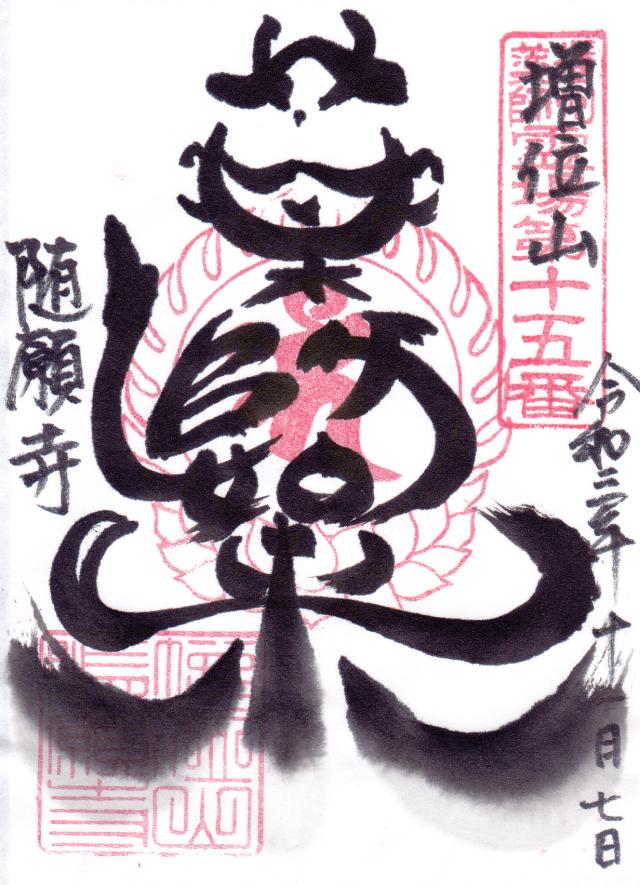 増位山
霊場第十五番
令和三年十一月七日
薬師如来
随願寺